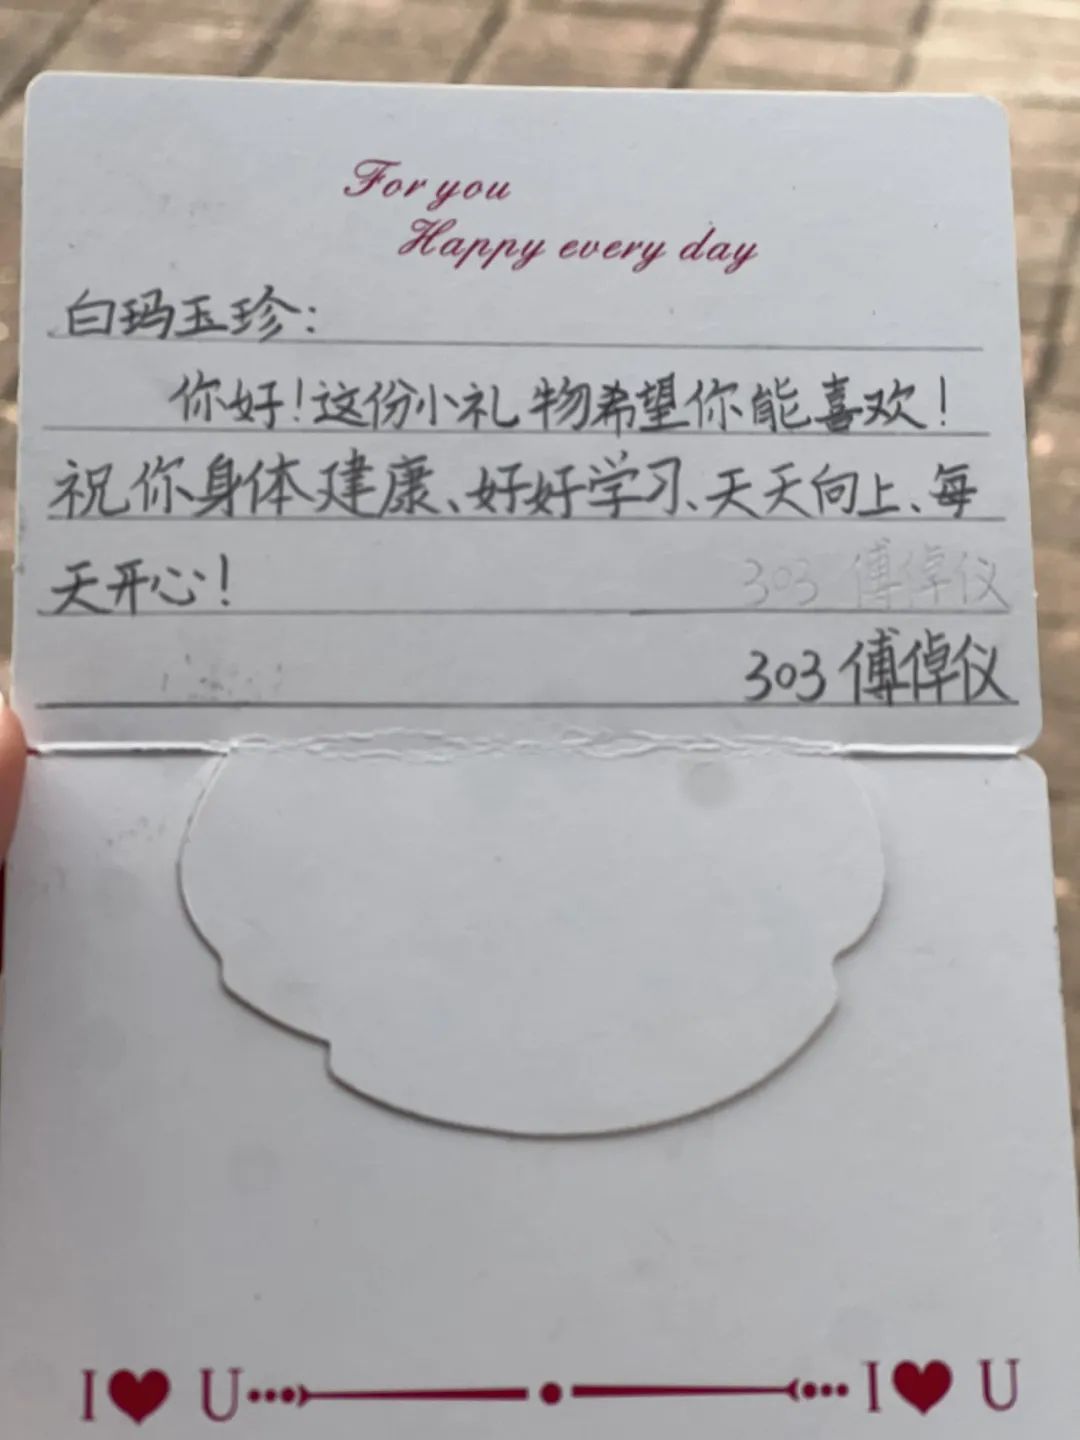 For you
Happy every day
白玛玉珍:
你好!这份小礼物希望你能喜欢!
祝你身体建康、好好学习、天天向上、每
天开心!
303 傅倬仪
303 傅倬仪
I ♥ U I ♥ U